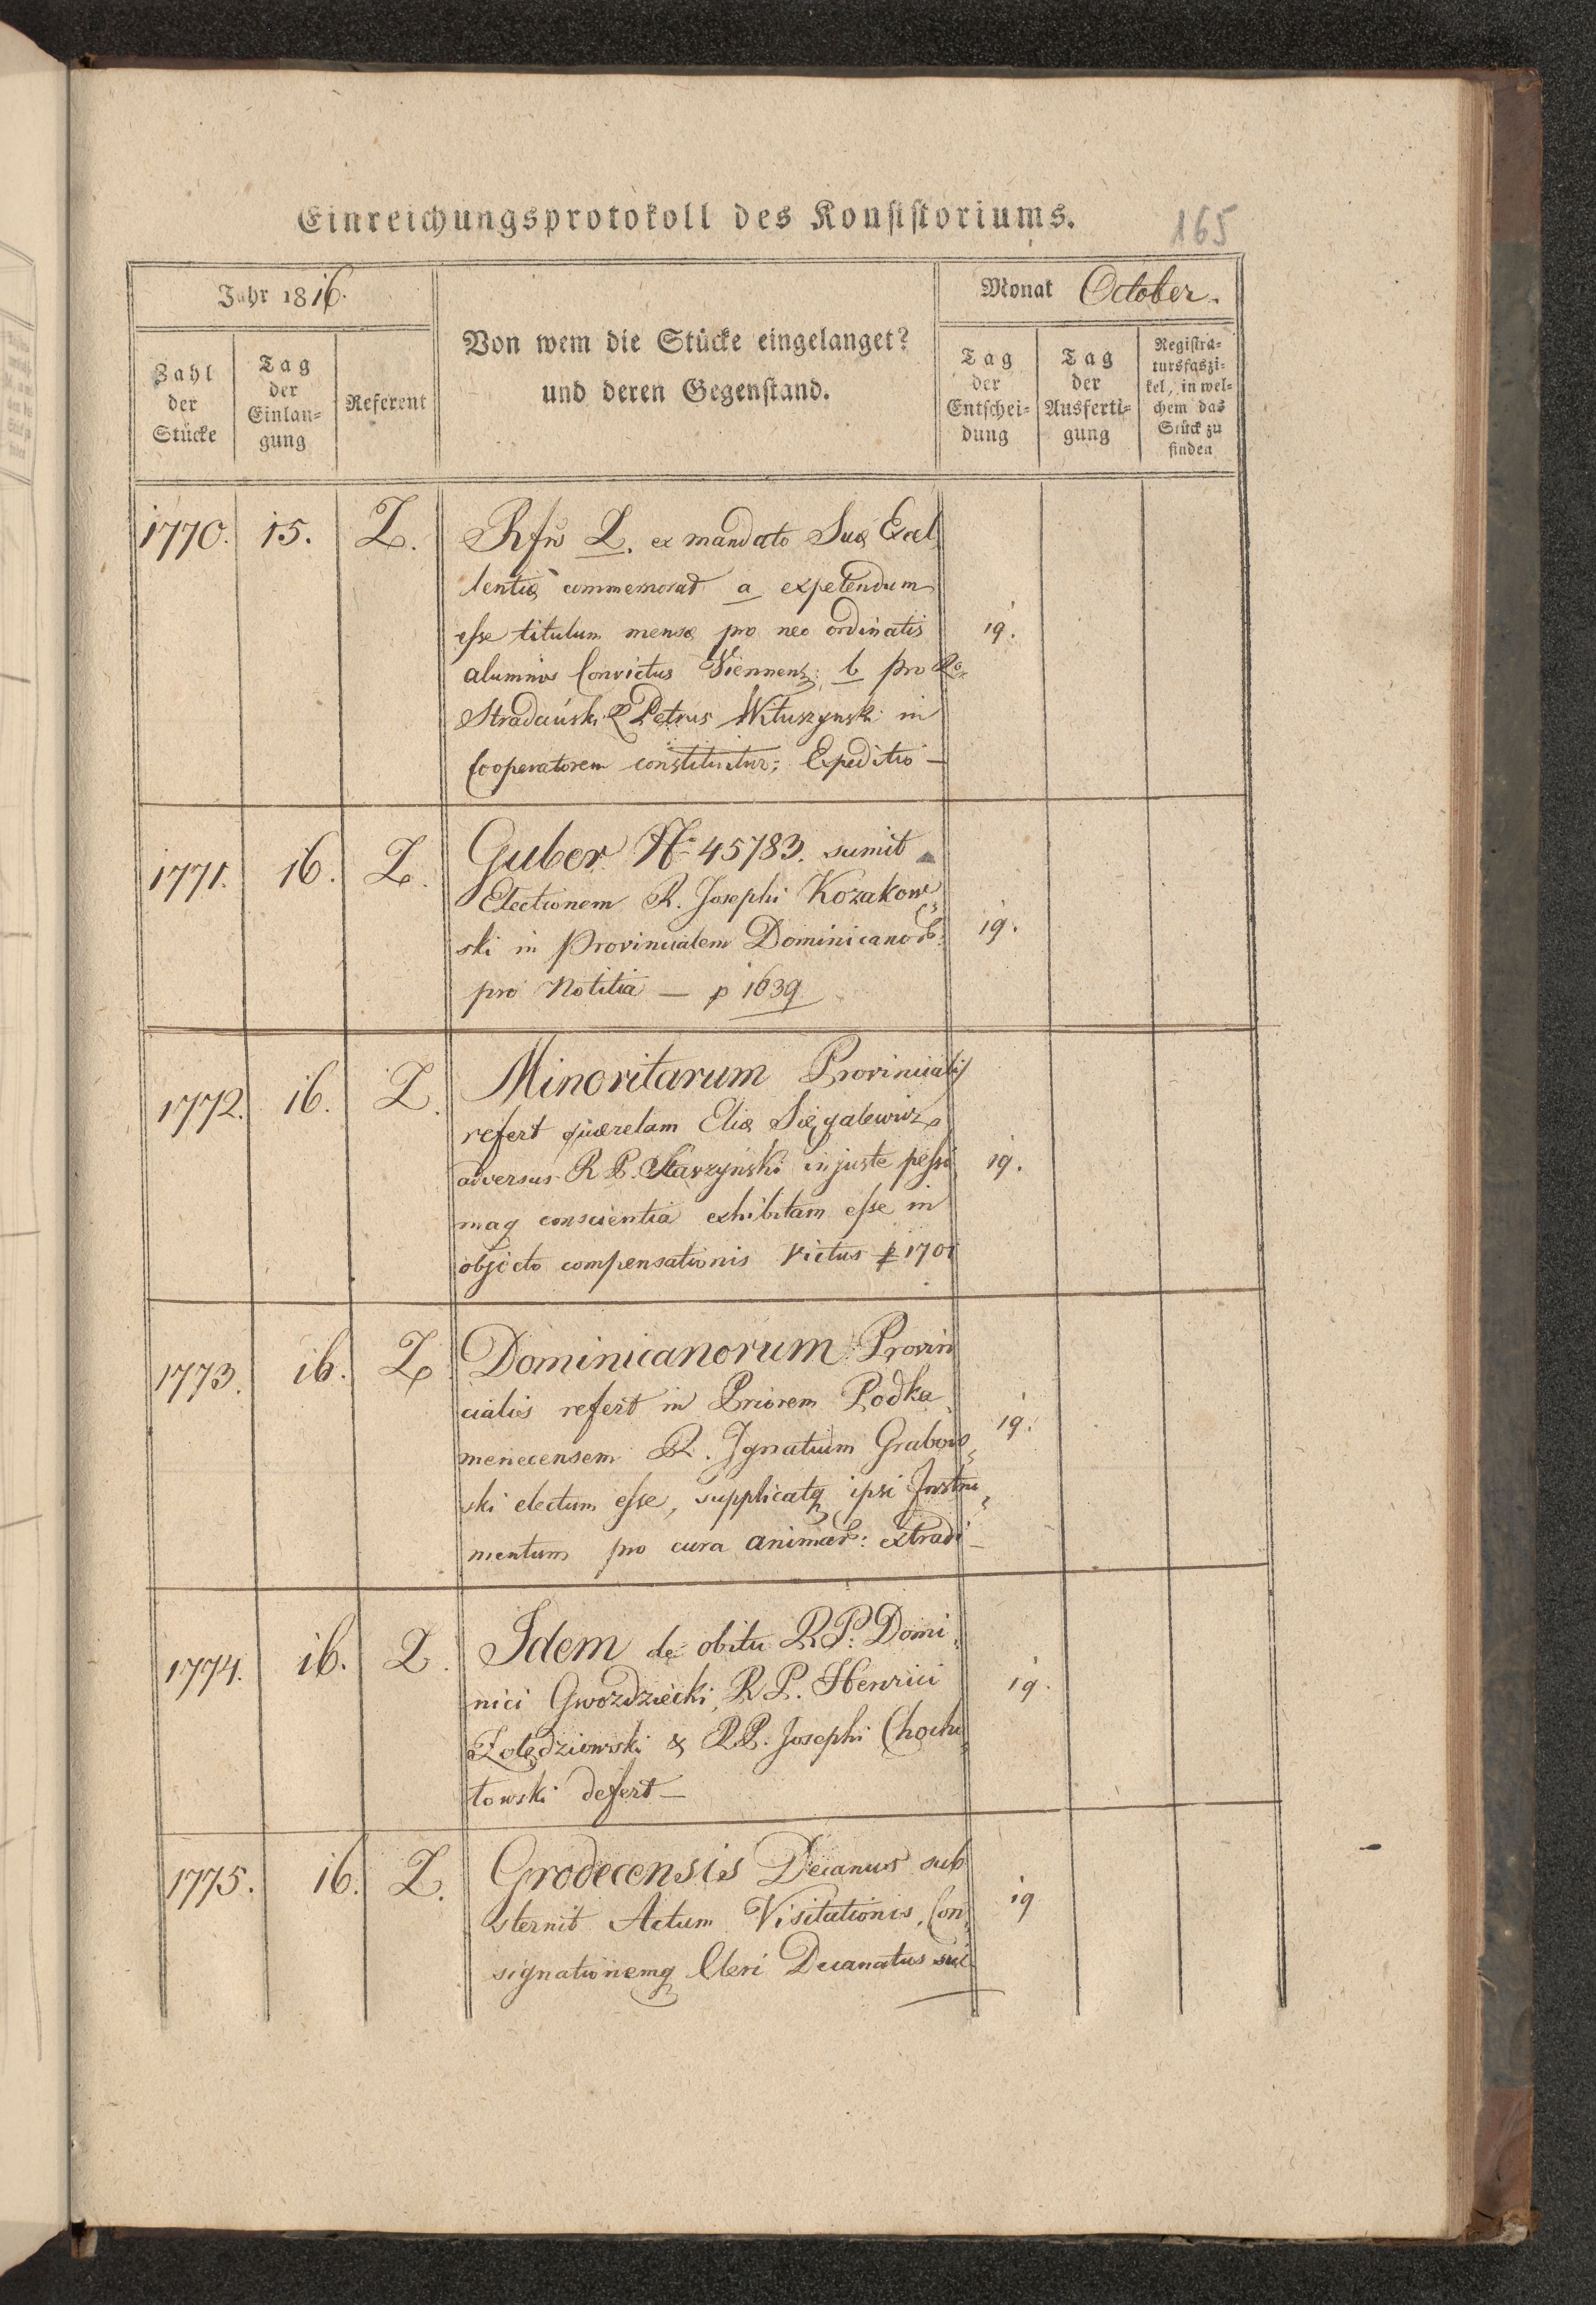 Einreichungsprotokoll des Konsistoriums.
165
Jahr 1816.
Monat October.
Zahl der Stücke
Tag der Einlan-gung
Referent
Von wem die Stücke eingelanget?
und deren Gegenstand.
Tag der Entschei-dung
Tag der Ausferti-gung
Registra-tursfaszi-kel, in wel-chem das Stück zu finden
1770. 15. Z. Rfns L. ex mandato Suæ Excel
lentiæ commemorat a expetendum
esse titulum mensæ pro neo ordinatis 19.
alumnos Convictus Viennens: b pro
Stradański Petrus in
Cooperatorem constituitur; Expeditio —
1771. 16. Z. Guber N: 45783. sumit
Electionem R. Josephi Kozakow
ski in Provincialem Dominicanor: 19.
pro Notitia — p 1639
1772. 16. Z. Minoritarum Provincialis
refert quærelam Eliæ
adversus R P. injuste pessi 19.
maq conscientia exhibitam esse in
objecto compensationis Victus p 1701
1773. 16. Z. Dominicanorum Provin
cialis refert in Priorem Podka
menecensem R. Ignatium Grabow 19.
ski electum esse, supplicatq ipsi Instru
mentum pro cura animar: extradi —
1774. 16. Z. Idem de obitu RP: Domi
nici Gwozdziecki, R P. Henrici 19.
Zolędziowski & RP. Josephi Chochi
towski defert —
1775. 16. Z. Grodecensis Decanus sub
sternit Actum Visitationis, Con 19
signationemq Cleri Decanatus sui